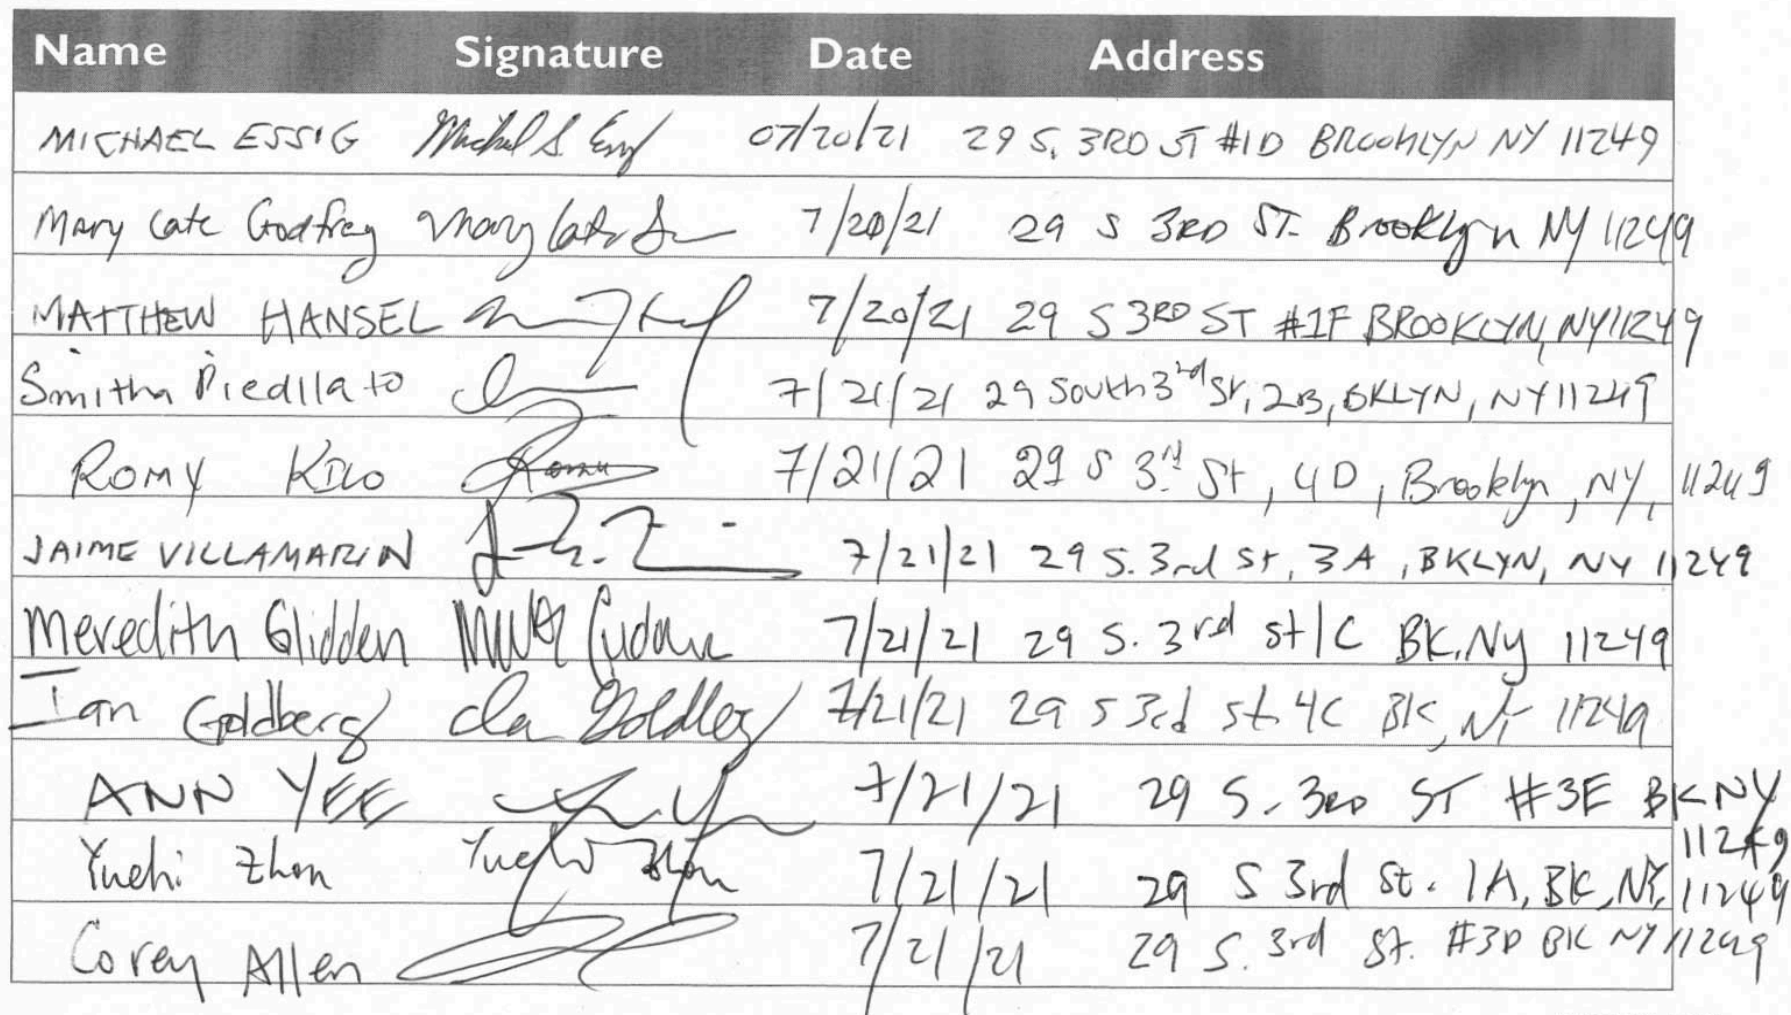 Name Signature Date Address
MICHAEL ESSIG Michael S Essig 07/20/21 29 S. 3RD ST #1D BROOKLYN NY 11249
Mary Cate Godfrey Mary Cate 7/20/21 29 S 3RD ST. Brooklyn NY 11249
MATTHEW HANSEL 7/20/21 29 S 3RD ST #1F BROOKLYN, NY 11249
Smitha 7/21/21 29 South 3rd St, 2B, BKLYN, NY 11249
ROMY Romy 7/21/21 29 S 3rd St, 4D, Brooklyn, NY, 11249
JAIME VILLAMARIN 7/21/21 29 S. 3rd St, 3A, BKLYN, NY 11249
Meredith Glidden 7/21/21 29 S. 3rd St 1C BK, NY 11249
Ian Goldberg Ian Goldberg 7/21/21 29 S 3rd St. 4C BK, NY 11249
ANN YEE 7/21/21 29 S. 3RD ST #3E BK NY
11249
Yuchi Zhon Yuchi Zhon 7/21/21 29 S 3rd St. 1A, BK, NY, 11249
Corey Allen 7/21/21 29 S. 3rd St. #3D BK NY 11249